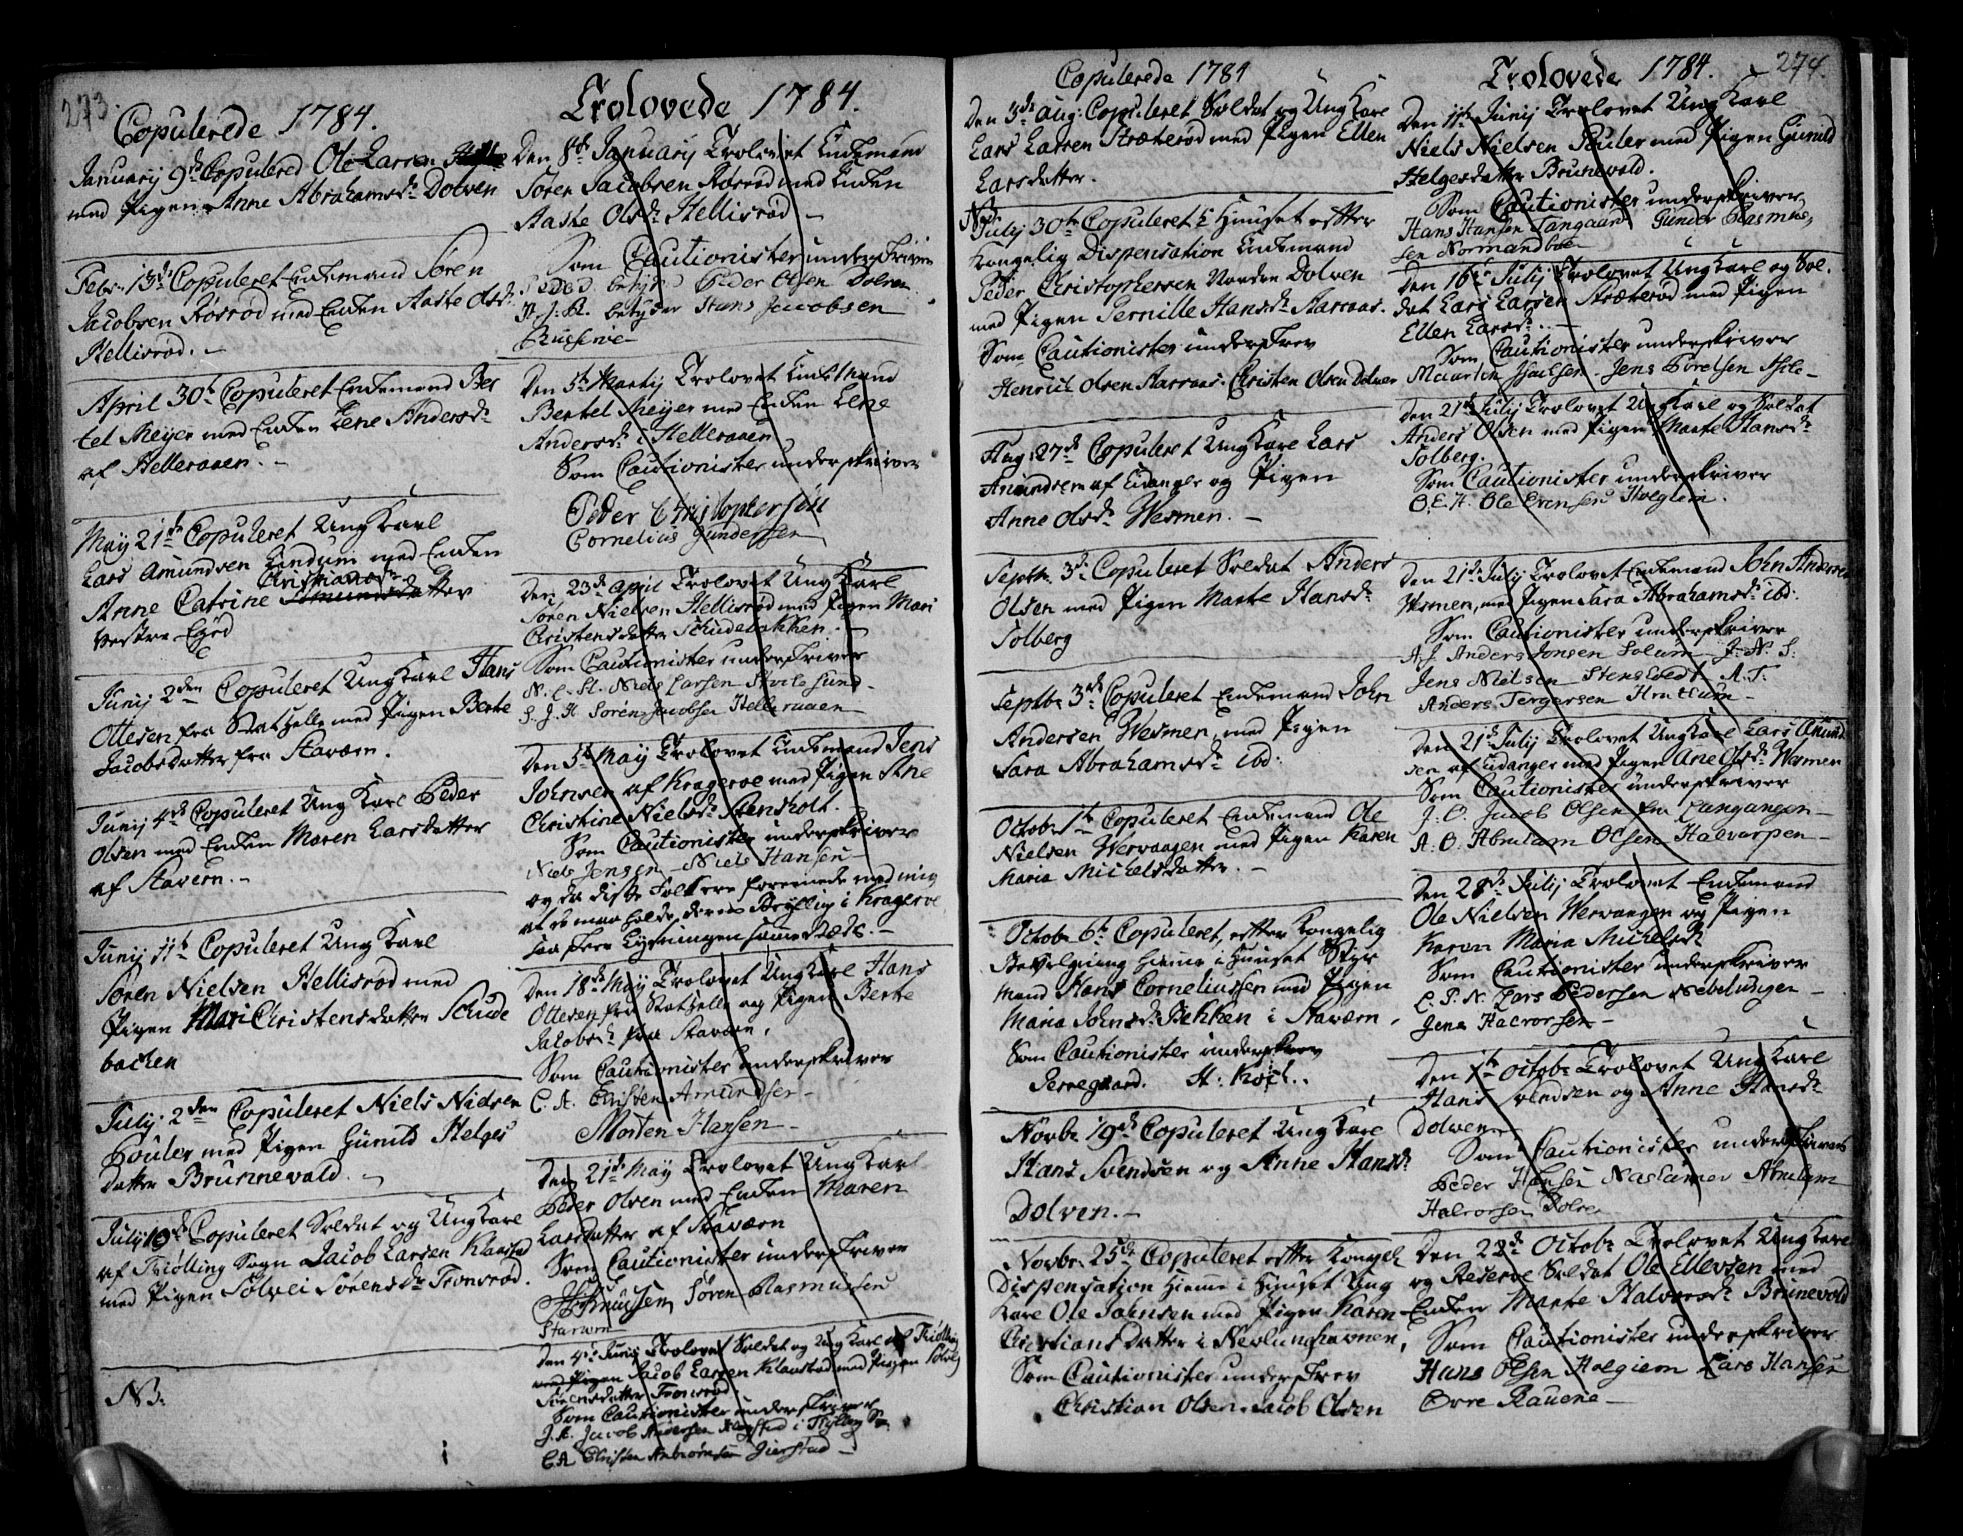 273.
Copulerede 1784.
January 9de Copulered Ole Larsen
med Pigen Anne Abrahamsdr Dolven
Febr. 13de Copuleret Enkemand Sören
Jacobsen Rösröd med Enken Aaste Olsdr
Hellisröd.
April 30te Copuleret Enkemand Ber
tel Meyer med Enken Lene Andersdr
af Helleraaen.
Maij 21de Copuleret Ung Karl
Lars Amundsen med Enken
Christiansdr
Anne Catrine Amundsdatter
Vestre
Junij 2den Copuleret Ung Karl Hans
Ottesen fra Stathelle med Pigen Berte
Jacobsdatter fra Staværn.
Junij 4de Copuleret Ung Karl Peder
Olsen med Enken Maren Larsdatter
af Stavern.
Junij 11te Copuleret Ung Karl
Sören Nielsen Hellisröd med
Pigen Mari Christensdatter Schude
backen
Julij 2den Copuleret Niels Nielsen
Söuler med Pigen Gunild Helges
datter Brunnevald.
Julij 10de Copuleret Soldat og Ung Karl
af Tiölling Sogn Jacob Larsen Klaastad
med Pigen Sölvei Sörensdr Tronsröd.
N3.
Trolovede 1784.
Den 8de January Trolovet Enkemand
Sören Jacobsen Rösröd med Enken
Aaste Olsdr Hellisröd
Som Cautionister underskriver
betyder Peder Olsen Dolven
H. J. R. betyder Hans Jacobsen
Den 5te Martij Trolovet Enkemand
Bertel Meyer med Enken Lene
Andersdr i Helleraaen
Som Cautionister underskriver
Peder Christophersön
Cornelius Gundersen
Den 23de April Trolovet Ung Karl
Sören Nielsen Hellisröd med Pigen Mari
Christensdatter Schudebakken.
Som Cautionister underskriver
N. L. St. Niels Larsen
S. J. H. Sören Jacobsen Helleraaen
Den 5te May Trolovet Enkemand Jens
Johnsen af Krageröe med Pigen Ane
Christine Nielsdr Stensholt.
Som Cautionister underskriver
Niels Jensen Niels Hansen
og da disse Folk ere foreenede med mig
at de maa holde deres Bryllup i Krageröe
saa skeer Lysningen samme stæds.
Den 18de May Trolovet Ung Karl Hans
Ottesen fra Stathelle og Pigen Berte
Jacobsdr fra Staværn.
Som Cautionister underskriver
C. A. Christen Amundsen
Morten Hansen
Den 21de May Trolovet Ung Karl
Peder Olsen med Enken Maren
Larsdatter af Staværn
Som Cautionister underskriver
Sören Rasmussen
Starvern
Den 4de Junij Trolovet Soldat og Ung Karl af Tiölling
med Pigen Jacob Larsen Klaastad med Pigen Sölvej
Sörensdatter Tronsröd
Som Cautionister underskriver
J. A. Jacob Andersen Klaastad i Tiölling
C A Christen
Copulerede 1784
Den 3de Aug: Copuleret Soldat og Ung Karl
Lars Larsen Stræteröd med Pigen Ellen
Larsdatter.
N3
Julij 30te Copuleret i Huuset effter
Kongelig Dispensation Enkemand
Peder Christophersen Nordre Dolven
med Pigen Pernille Hansdr Aarraas.
Som Cautionister underskrev
Henrich Olsen Aarraas. Christen Olsen Dolven
Aug: 27de Copuleret Ung Karl Lars
Amundsen af Eidanger og Pigen
Anne Olsdr Wesmen.
Septbr. 3de Copuleret Soldat Anders
Olsen med Pigen Marte Hansdr
Tolberg
Septbr 3de Copuleret Enkemand John
Andersen Wesmen, med Pigen
Sara Abrahamsdr ibd:
Octobr 1te Copuleret Enkemand Ole
Nielsen Wervaagen med Pigen Karen
Maria Michelsdatter.
Octobr 6te Copuleret, effter Kongelig
Bevilgning hieme i Huuset Styr
mand Hans Corneliussen med Pigen
Maria Johnsdr Bekken i Staværn.
Som Cautionister underskrev
Perregaard. H: Koch.
Novbr. 19de Copuleret Ung Karl
Hans Svendsen og Anne Hansdr
Dolven.
Novbr. 25de Copuleret effter Kongel:
Dispensation hieme i Huuset Ung
Karl Ole Johnsen med Pigen Karen
Christiansdatter i Nevlunghavnen,
Som Cautionister underskrev
Christian Olsen. Jacob Olsen
Trolovede 1784. 274.
Den 11te Junij Trolovet Ung Karl
Niels Nielsen Söuler med Pigen Gunild
Helgesdatter Brunevald.
Som Cautionister underskriver
Hans Hansen Tangaard Gunder Rasmus
sen
Den 16de Julij Trolovet Ung Karl og Sol.
dat Lars Larsen Stræteröd med Pigen
Ellen Larsdr.
Som Cautionister underskriver
Maurten Isachsen. Jens
Den 21de Julij Trolovet Ung Karl og Soldat
Anders Olsen med Pigen Marte Hansdr
Tolberg.
Som Cautionister underskriver
O. E. H. Ole Evensen
Den 21de Julij Trolovet Enkemand John Andersen
Wesmen, med Pigen Sara Abrahamsdr ibd:
Som Cautionister underskriver
A J Anders Jonsen Solum J. N. S:
Jens Nielsen A. T.
Anders Torgersen
Den 21de Julij Trolovet Ung Karl Lars Amund
sen af Eidanger med Pigen Ane Olsdr Wesmen
Som Cautionister underskriver
J. O. Jacob Olsen fra Langangen
A. O. Abraham Olsen Halvarpen
Den 28de Julij Trolovet Enkemand
Ole Nielsen Wervaagen og Pigen
Karen Maria Michelsdr
Som Cautionister underskriver
L. P. N. Lars Pedersen Nebelungen
Jens Halvorsen
Den 1te Octobr Trolovet Ung Karl
Hans Svendsen og Anne Hansdr
Dolven
Som Cautionister underskriver
Peder Hansen Abraham
Halvorsen Dolven
Den 22de Octobr Trolovet Ung Karl
og Reserve Soldat Ole Ellevsen med
Enken Marte Halvorsdr Brunevold
Som Cautionister underskriver
Hans Olsen Lars Hansen
Övre Rauene